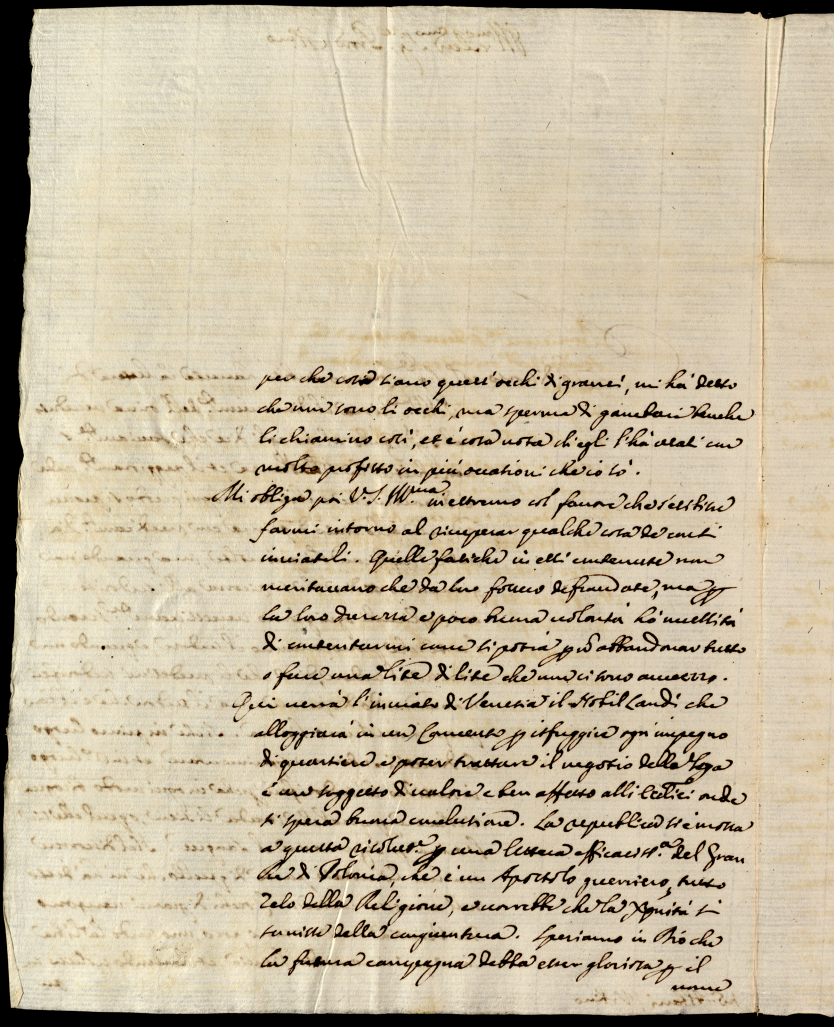 per che cosa siano questi occhi di granci, mi ha detto
che non sono li occhi, ma sperma di benche
li chiamino così, et è cosa nota ch'egli l'hà usati con
molto profitto in più occasioni che io sò.
Mi obliga poi V.S. Ill.ma in estremo col favore che
farmi intorno al ricuperar qualche cosa de conti
inviatili. Quelle fatiche in essi contenute non
meritavano che da loro fossero defraudate, ma p
la loro durezza e poco buona volontà hò necessità
di contentarmi come si potrà, p nõ abbandonar tutto
o fare una lite di lite che non ci sono avvezzo.
Quà verrà l'inviato di Venetia il Nobil Landi che
alloggiarà in un Convento p isfuggire ogni impegno
di quartiere e poter trattare il negotio della Lega
è un soggetto di valore e ben affetto alli onde
si spera buona conclusione. La republica si è mossa
a questa risolut.e p una lettera efficaciss.a del gran
Rè di Polonia, che è un Apostolo guerriero, tutto
zelo della Religione, e vorrebbe che la Xpnità si
servisse della congiuntura. Speriamo in Dio che
la futura campagna debba esser gloriosa p il
nome